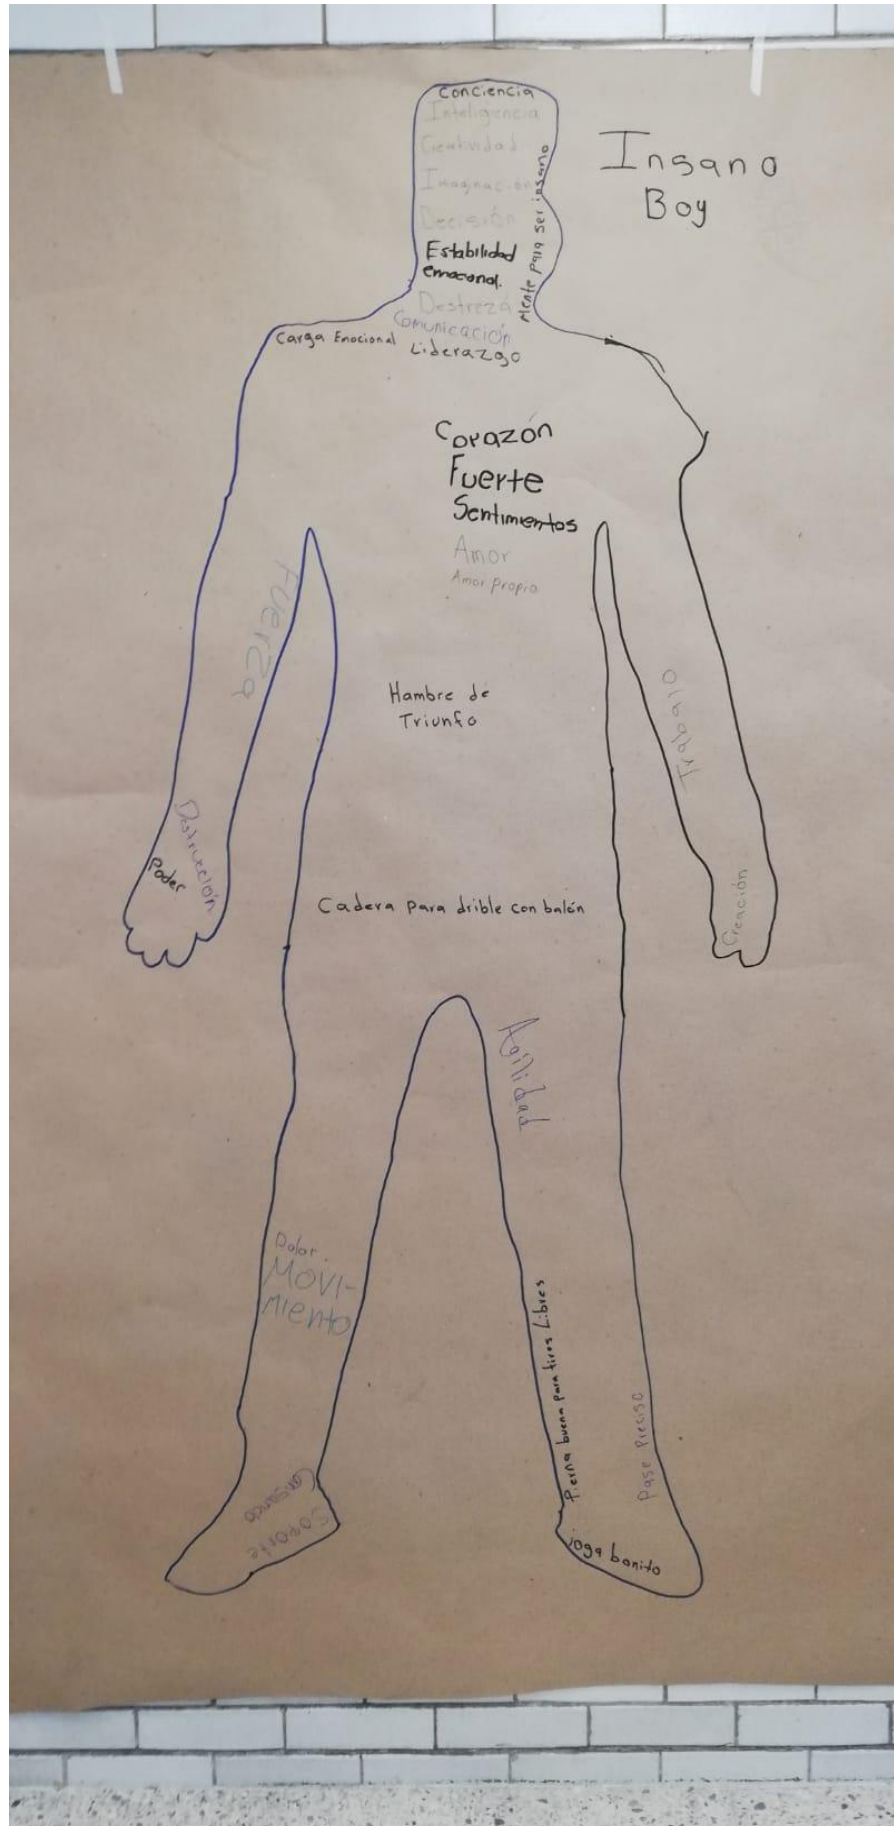 Conciencia
Inteligencia
Creatividad
Imaginación
Decisión
Estabilidad
emocional.
Mente para ser insano
Insano
Boy
Destreza
Comunicación
Carga Emocional
Liderazgo
Corazón
Fuerte
Sentimientos
Amor
Amor propio
Fuerza
Hambre de
Triunfo
Trabajo
Destrucción
Poder
Creación
Cadera para drible con balón
Agilidad
Dolor
Movi-
miento
Pierna buena para tiros Libres
Pase Preciso
Cansancio
Soporte
joga bonito